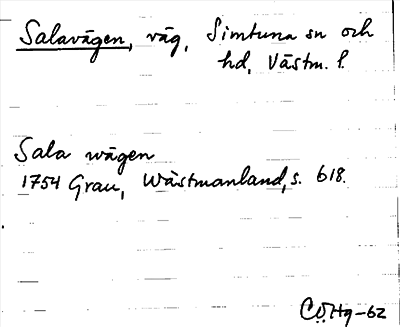 Salavägen, väg, Simtuna sn och
hd, Västm. l.
Sala wägen
1754 Grau, Wästmanland, s. 618.
CÖHg-62